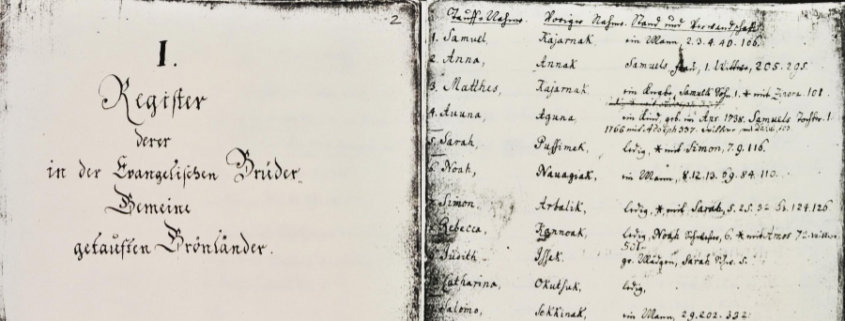 2
I.
Register
derer
in der Evangelischen Brüder-
Gemeine
getauften Grönländer.
Tauff-Nahme. Voriger Nahme. Stand und Verwandschafft
1. Samuel, Kajarnak, ein Mann, 2. 3. 4. 40. 106.
2. Anna, Annak Samuels Frau, 1. Wittwe, 205. 295.
3. Matthes, Kajarnak ein Knabe, Samuels Sohn 1. * mit Zipora. 101.
4. Auuna, Aguna, ein Kind, geb. im Apr. 1738. Samuels Tochter. 1.
1766 mit Adolph 337.
5. Sarah, Pussimak, ledig, * mit Simon, 7. 9. 116.
6. Noah, Nauagiak, ein Mann, 8. 12. 13. 69. 84. 110.
7. Simon, Arbalik, ledig, * mit Sarah, 5. 25. 32. 124. 126
Rebecca, Kannoak, ledig, Noah Schwester, 6. * mit Amos 72.
Judith Issek, gr. Mädgen, Sarah 5.
Catharina, Okutsuk, ledig,
Salomo, Sekkinak, ein Mann, 29. 202. 332.